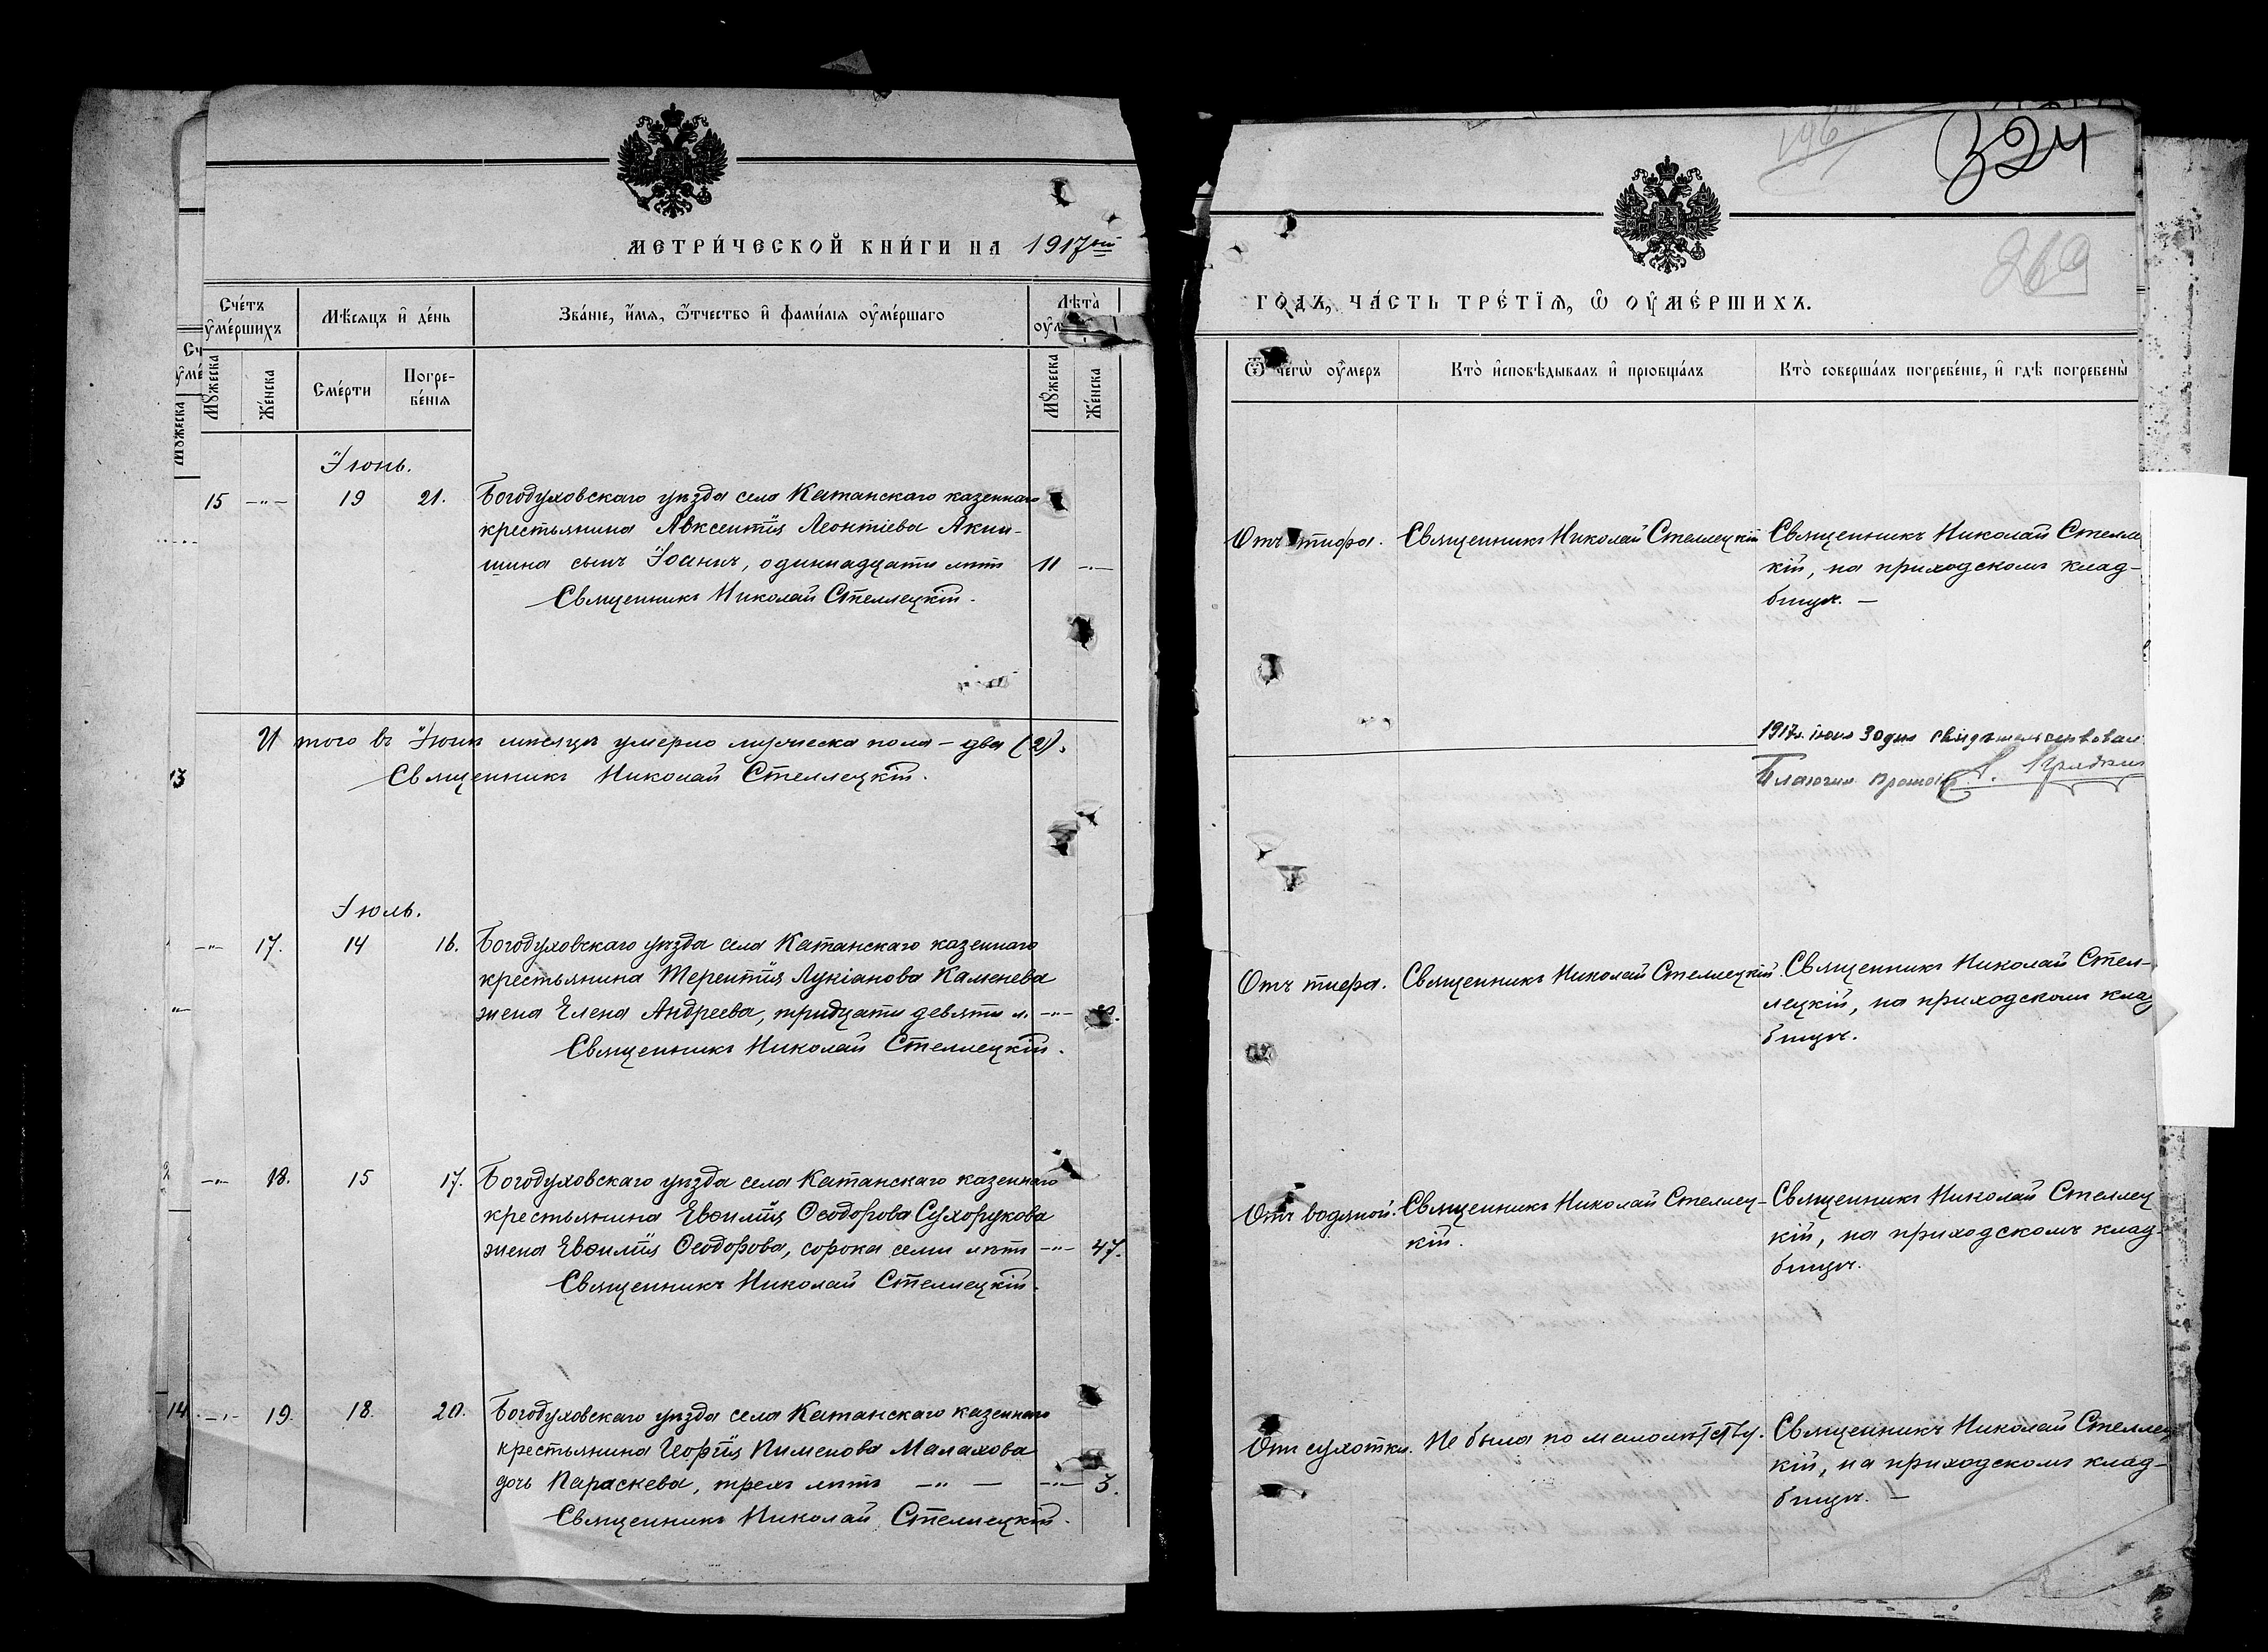 МЕТРИ́ЧЕСКОЙ КНИ́ГИ НА 1917ый
Сче́тъ ᲂу҆ме́ршихъ
Мѣ́сяцъ и҆ де́нь
Зва́нїе, и҆́мѧ, ѻ҆́тчество и҆ фами́лїѧ ᲂу҆ме́ршагѡ
Лѣта̀
Мꙋжеска
Же́нска
Сме́рти
Погре-
бе́нїѧ
Мꙋжеска
Же́нска
Іюнь.
15 -„- 19 21. Богодуховскаго уѣзда села Катанскаго казеннаго
крестьянина Авксентія Леонтіева Аким-
шина сынъ Іоаннъ, одиннадцати лѣтъ 11 -„-
Священникъ Николай Стеллецкій.
И того въ Іюнѣ мѣсяцѣ умерло мужеска пола – два (2).
Священникъ Николай Стеллецкій.
Іюль.
-„- 17. 14 16. Богодуховскаго уѣзда села Катанскаго казеннаго
крестьянина Терентія Лукіанова Каменева
жена Елена Андреева, тридцати девяти л. -„-
Священникъ Николай Стеллецкій.
-„- 18. 15 17. Богодуховскаго уѣзда села Катанскаго казеннаго
крестьянина Евѳимія Ѳеодорова Сухорукова
жена Евѳимія Ѳеодорова, сорока семи лѣтъ -„- 47.
Священникъ Николай Стеллецкій.
-„- 19. 18. 20. Богодуховскаго уѣзда села Катанскаго казеннаго
крестьянина Георгія Пименова Малахова
дочь Параскева, трехъ лѣтъ -„- — -„- 3.
Священникъ Николай Стеллецкій.
13
14
196
324
269
ГО́ДЪ, ЧА́СТЬ ТРЕ́ТЇѦ, Ѡ҆ ОУ҆МЕ́РШИХЪ.
Ѿ чегѡ̀ ᲂу҆́меръ
Кто̀ и҆сповѣ́дывалъ и҆ прїѻбща́лъ
Кто̀ соверша́лъ погребе́нїе, и҆ гдѣ̀ погребены̀
Отъ тифа. Священникъ Николай Стеллецкій Священникъ Николай Стелле
кій, на приходскомъ клад-
бищѣ. —
1917 г. іюля 30 дня свидѣтельствовалъ
Благочин.
Отъ тифа. Священникъ Николай Стеллецкій. Священникъ Николай Стел-
лецкій, на приходскомъ клад
бищѣ.
Отъ водяной. Священникъ Николай Стеллец- Священникъ Николай Стеллец
кій. кій, на приходскомъ клад-
бищѣ.
Отъ сухотки. Не была по малолѣтству. Священникъ Николай Стеллец
кій, на приходскомъ клад-
бищѣ. —